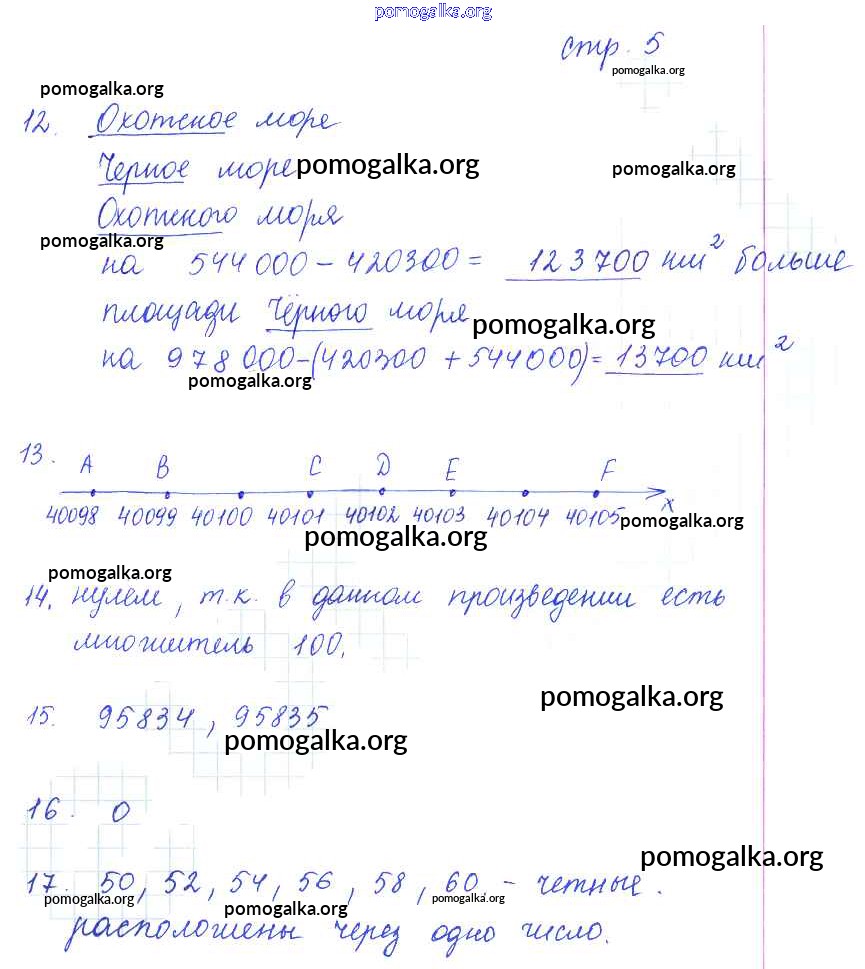 pomogalka.org
стр. 5
pomogalka.org
pomogalka.org
12. Охотское море
Черное море pomogalka.org
pomogalka.org
Охотского моря
pomogalka.org
на 544000 – 420300 = 123700 км² больше
площади Чёрного моря
pomogalka.org
на 978000–(420300 + 544000)= 13700 км²
pomogalka.org
13.
A B C D E F
40098 40099 40100 40101 40102 40103 40104 40105 x
pomogalka.org
pomogalka.org
pomogalka.org
14. нулем, т.к. в данном произведении есть
множитель 100.
pomogalka.org
15. 95834, 95835
pomogalka.org
16. 0
pomogalka.org
17. 50, 52, 54, 56, 58, 60 – четные.
pomogalka.org
pomogalka.org
pomogalka.org
расположены через одно число.